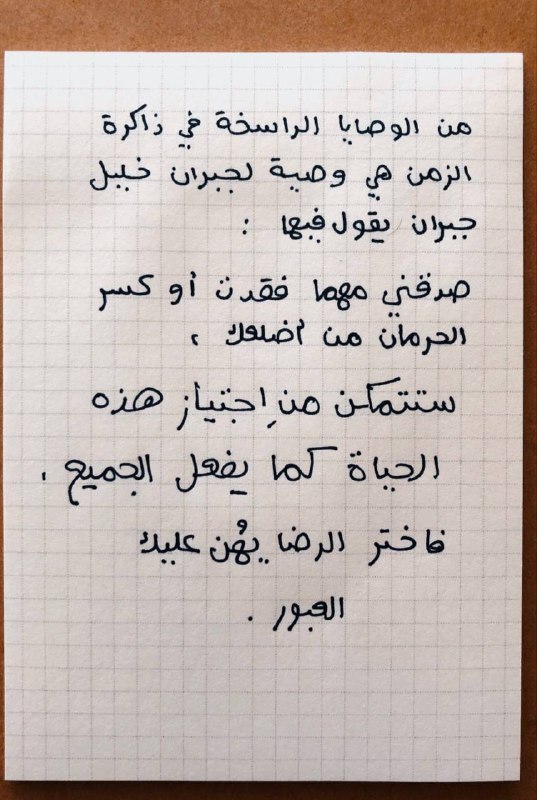 من الوصايا الراسخة في ذاكرة
الزمن هي وصية لجبران خليل
جبران يقول فيها :
صدقني مهما فقدت أو كسر
الحرمان من أضلعك ،
ستتمكن من إجتياز هذه
الحياة كما يفعل الجميع ،
فاختر الرضا يهُن عليك
العبور .